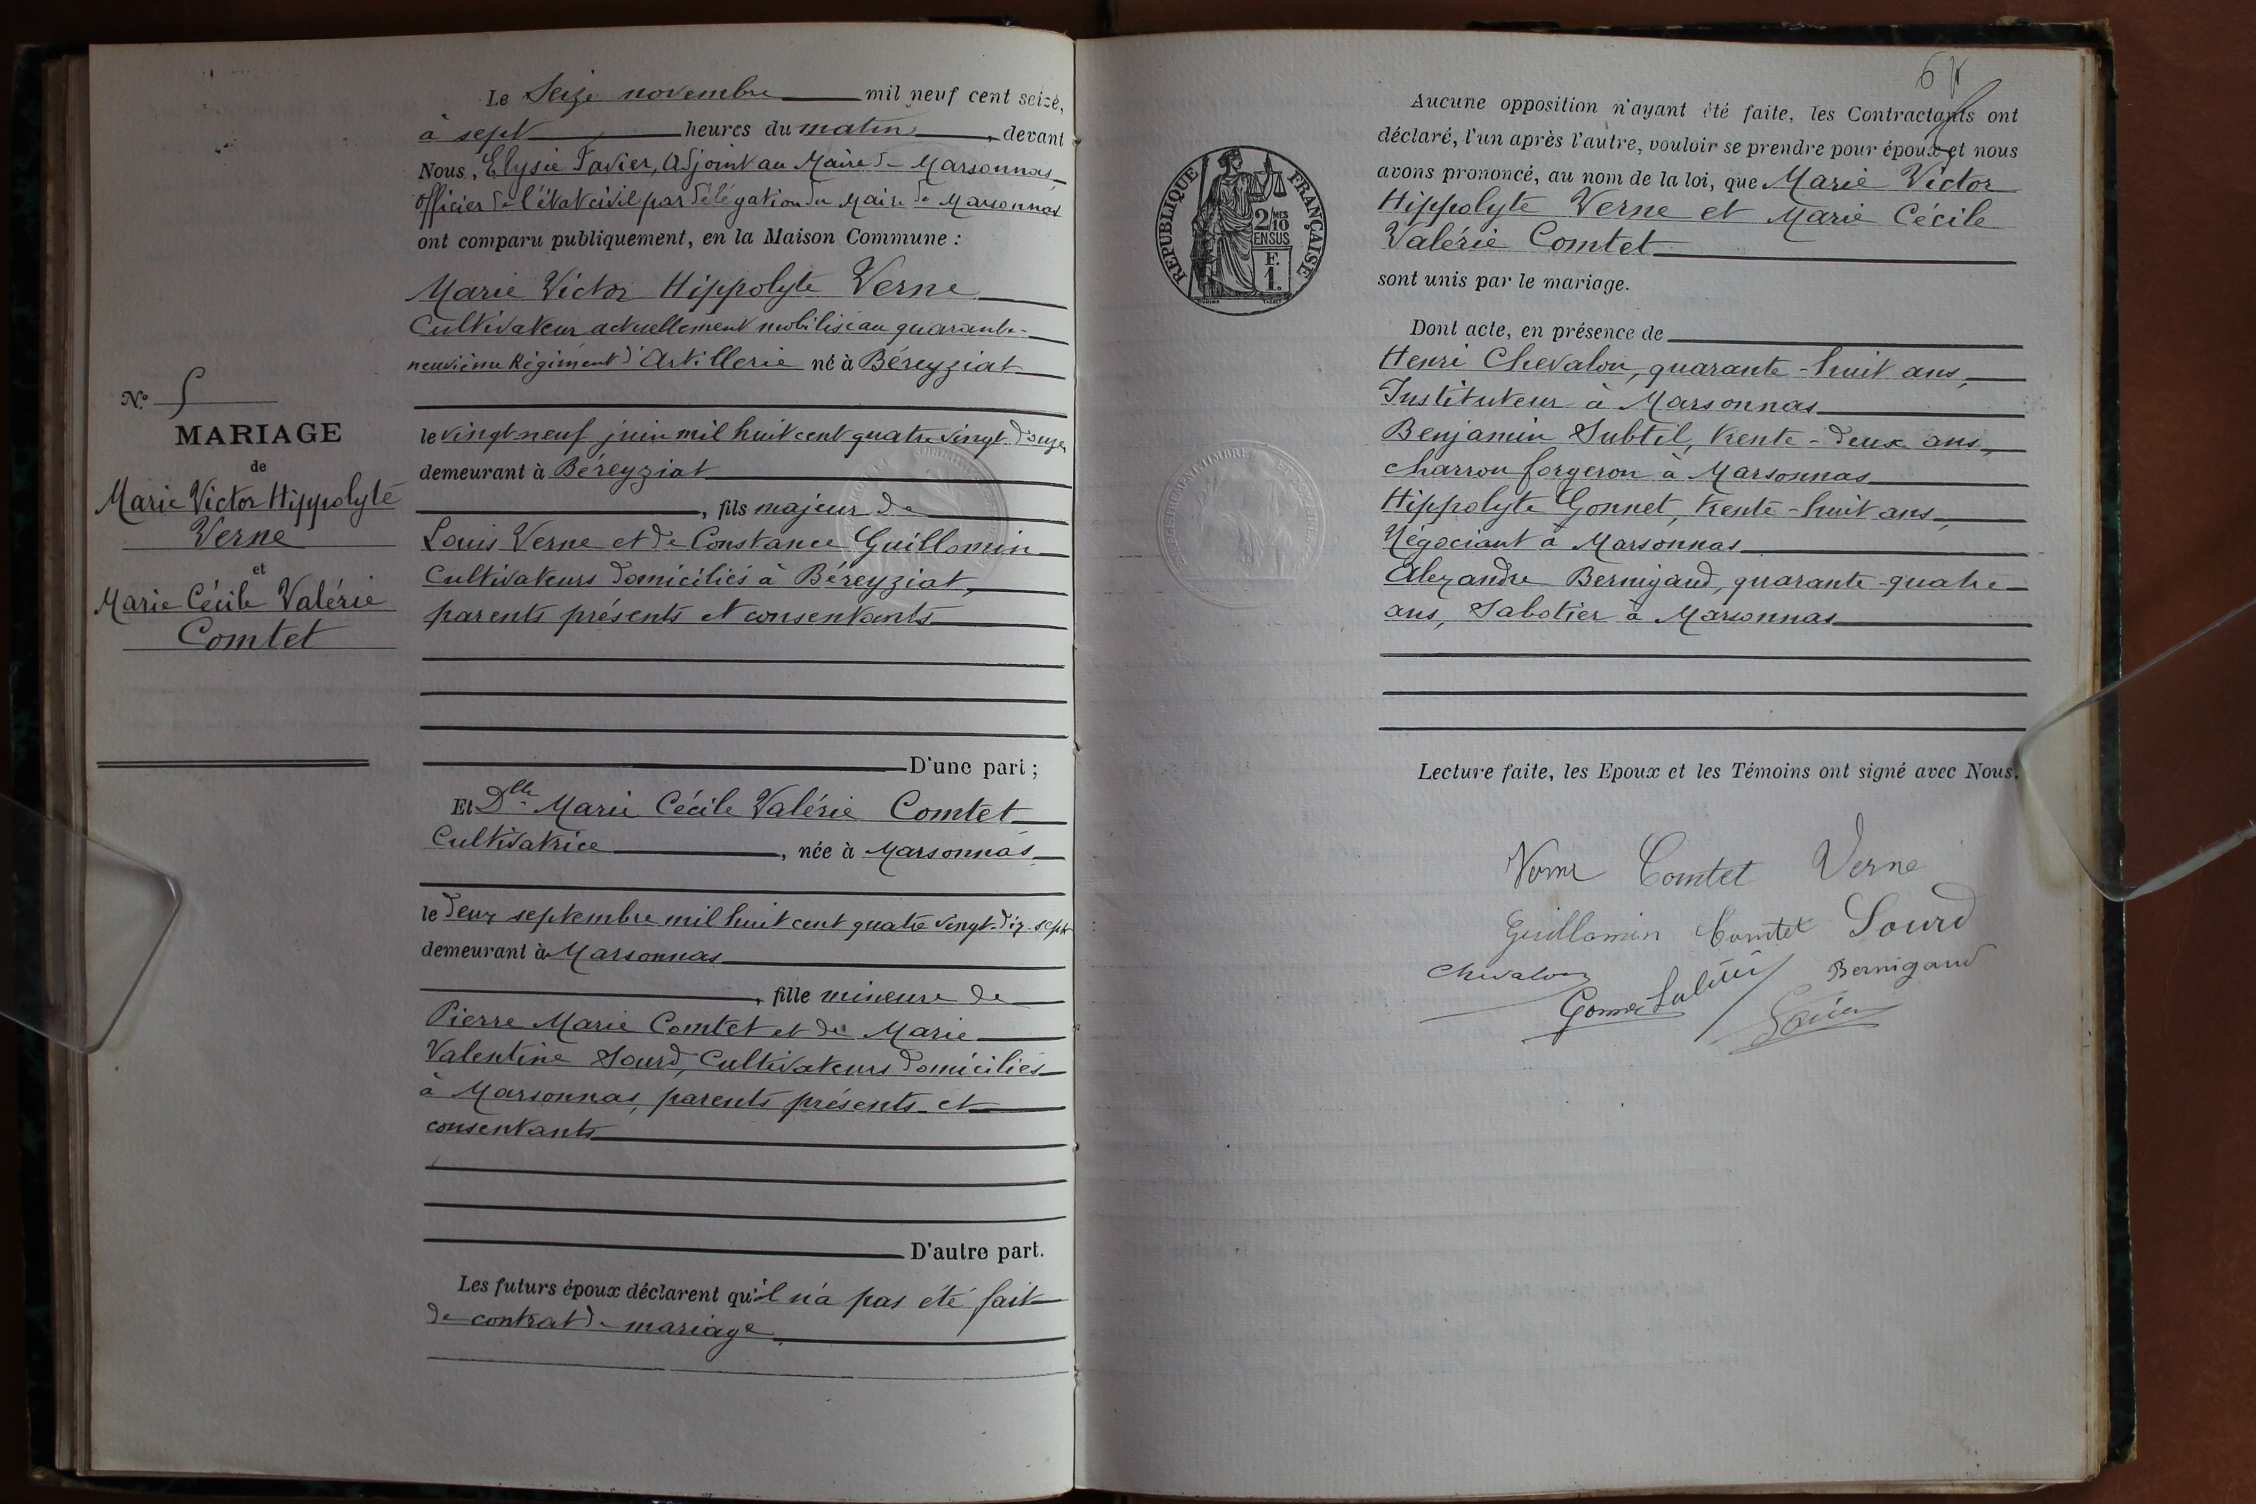 Le Seize novembre mil neuf cent seize,
à sept heures du matin, devant
Nous, Elysée Favier, Adjoint au Maire de Marsonnas
officier de l'état civil par délégation du Maire de Marsonnas
ont comparu publiquement, en la Maison Commune :
Marie Victor Hippolyte Verne
Cultivateur actuellement mobilisé au quarante-
neuvième Régiment d'Artillerie né à Béreyziat
le vingt-neuf juin mil huit cent quatre vingt-douze
demeurant à Béreyziat
, fils majeur de
Louis Verne et de Constance Guillomin
Cultivateurs domiciliés à Béreyziat,
parents présents et consentants
D'une part ;
Et Dlle Marie Cécile Valérie Comtet
Cultivatrice, née à Marsonnas
le deux septembre mil huit cent quatre vingt-dix-sept
demeurant à Marsonnas
, fille mineure de
Pierre Marie Comtet et de Marie
Valentine Sourd, Cultivateurs domiciliés
à Marsonnas, parents présents et
consentants
D'autre part.
Les futurs époux déclarent qu'il n'a pas été fait
de contrat de mariage
N.º 5
MARIAGE
de
Marie Victor Hippolyte
Verne
et
Marie Cécile Valérie
Comtet
6
Aucune opposition n'ayant été faite, les Contractants ont
déclaré, l'un après l'autre, vouloir se prendre pour époux et nous
avons prononcé, au nom de la loi, que Marie Victor
Hippolyte Verne et Marie Cécile
Valérie Comtet
sont unis par le mariage.
Dont acte, en présence de
Henri Chevalon, quarante-huit ans,
Instituteur à Marsonnas
Benjamin Subtil, trente-deux ans,
charron forgeron à Marsonnas
Hippolyte Gonnet, trente-huit ans,
Négociant à Marsonnas
Alexandre Bernigaud, quarante-quatre
ans, Sabotier à Marsonnas
Lecture faite, les Epoux et les Témoins ont signé avec Nous.
Verne Comtet Verne
Guillomin Comtet Sourd
Chevalon Bernigaud
Gonnet Subtil
Favier
RÉPUBLIQUE FRANÇAISE
2/10 MES
EN SUS
F.
1.